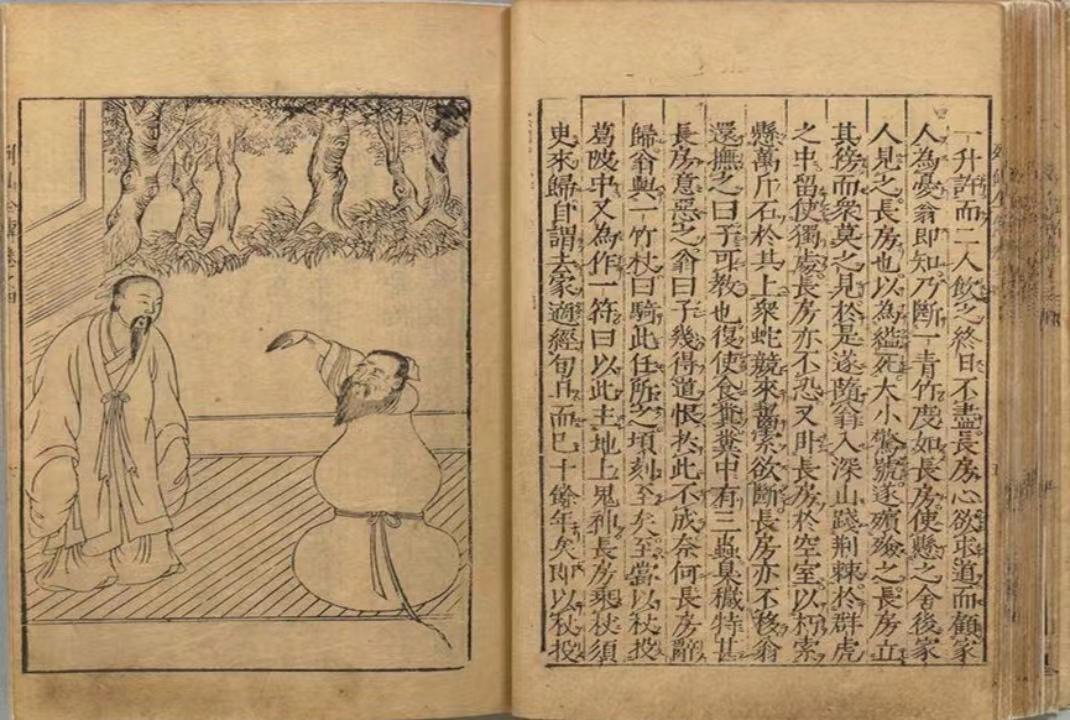 一升許而二人飲之終日不盡長房心欲求道而顧家
人為憂翁即知乃斷一青竹度如長房使懸之舍後家
人見之長房也以為縊死大小驚號遂殯殮之長房立
其徬而衆莫之見於是遂隨翁入深山踐荊棘於群虎
之中留使獨處長房亦不恐又卧長房於空室以朽索
懸萬斤石於其上衆蛇競來齧索欲斷長房亦不移翁
還撫之曰子可教也復使食糞糞中有三蟲臭穢特甚
長房意惡之翁曰子幾得道恨於此不成奈何長房辭
歸翁與一竹杖曰騎此任所之頃刻至矣至當以杖投
葛陂中又為作一符曰以此主地上鬼神長房乘杖須
臾來歸自謂去家適經旬日而已十餘年矣即以杖投
列仙全傳卷之四